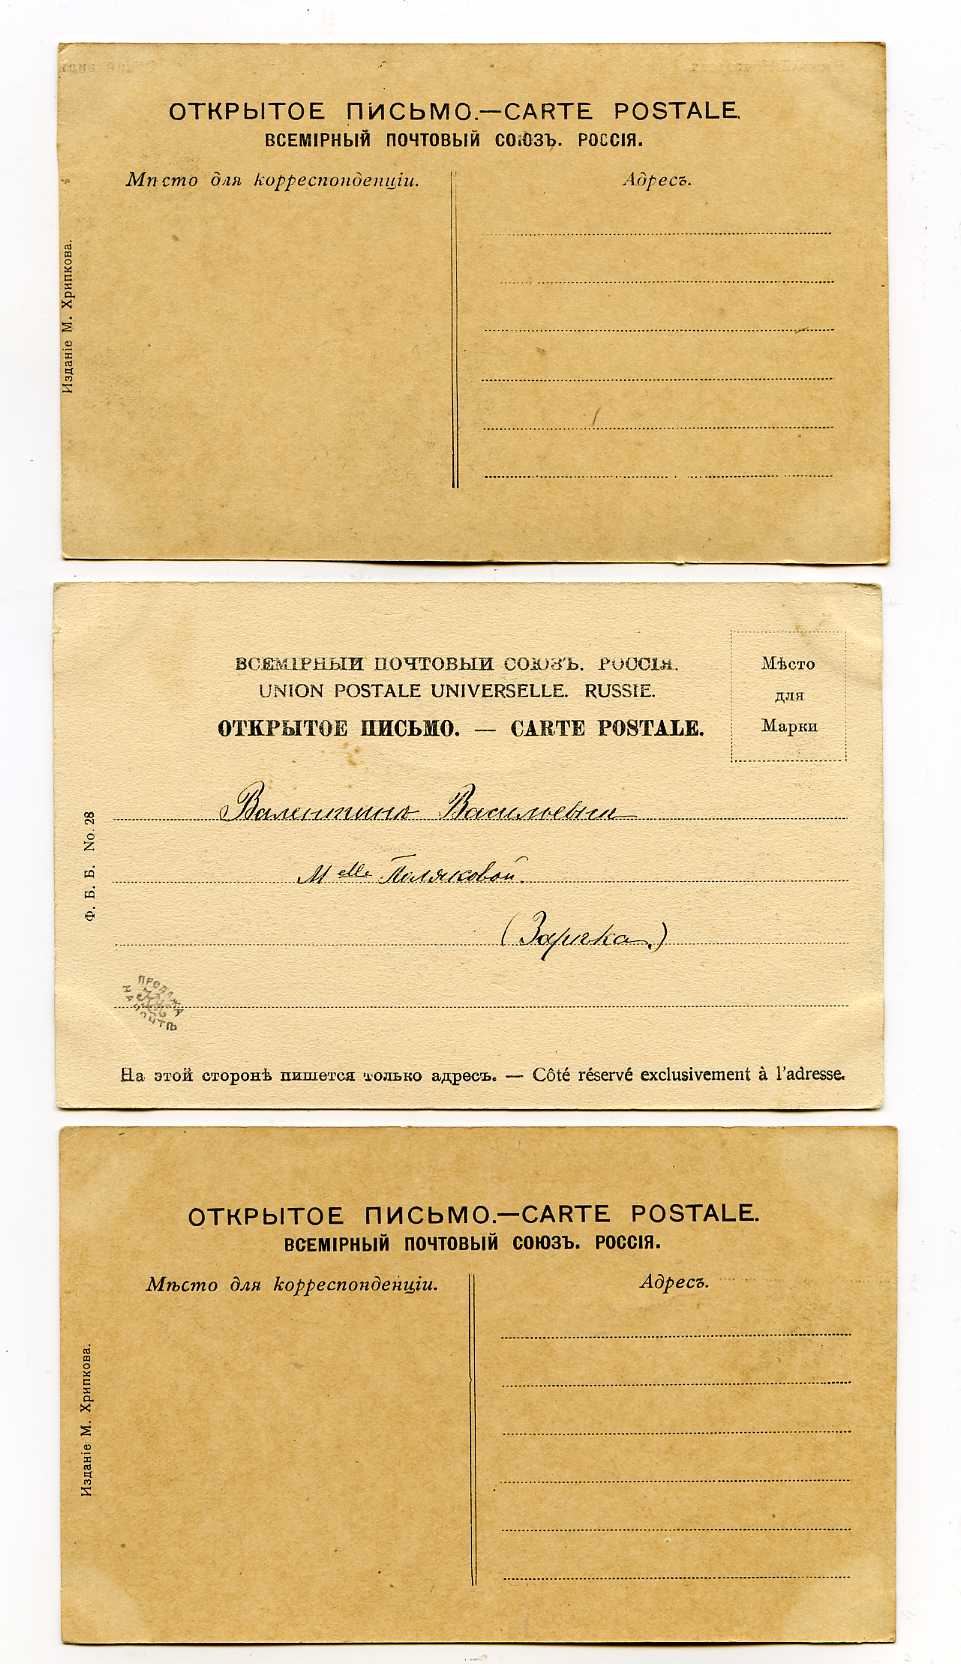 ОТКРЫТОЕ ПИСЬМО.—CARTE POSTALE.
ВСЕМІРНЫЙ ПОЧТОВЫЙ СОЮЗЪ. РОССІЯ.
Мѣсто для корреспонденціи.
Адресъ.
Изданіе М. Хрипкова.
ВСЕМІРНЫЙ ПОЧТОВЫЙ СОЮЗЪ. РОССІЯ.
UNION POSTALE UNIVERSELLE. RUSSIE.
ОТКРЫТОЕ ПИСЬМО. — CARTE POSTALE.
Мѣсто
для
Марки
Валентинѣ Васильевнѣ
Melle Поляковой.
Ф. Б. Б. No. 28
ПРОДАЖА
НА ПОЧТѢ
На этой сторонѣ пишется только адресъ. — Côté réservé exclusivement à l'adresse.
ОТКРЫТОЕ ПИСЬМО.—CARTE POSTALE.
ВСЕМІРНЫЙ ПОЧТОВЫЙ СОЮЗЪ. РОССІЯ.
Мѣсто для корреспонденціи.
Адресъ.
Изданіе М. Хрипкова.